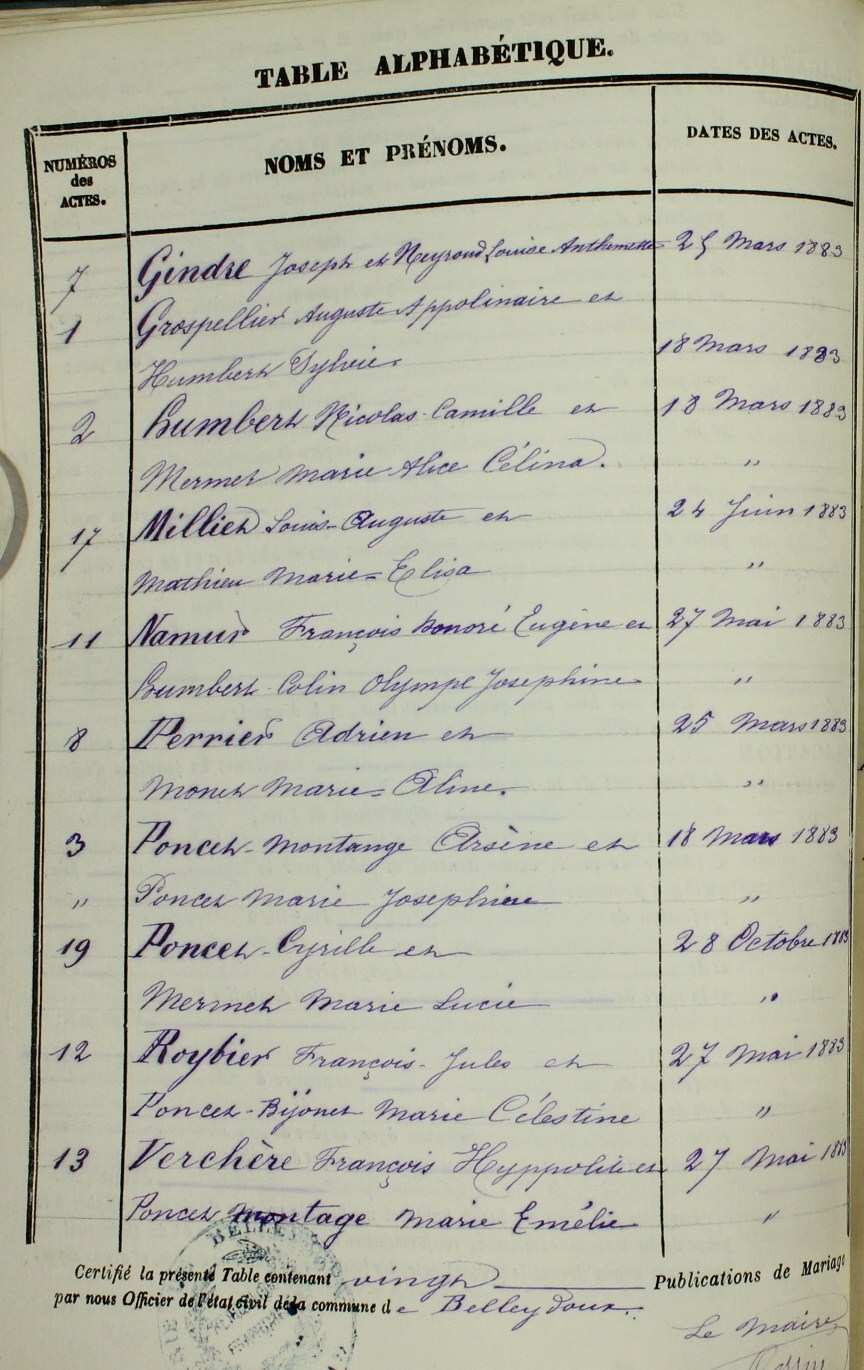 TABLE ALPHABÉTIQUE.
NUMÉROS des ACTES. NOMS ET PRÉNOMS. DATES DES ACTES.
7 Gindre Joseph et Neyroud Louise Anthemette 25 Mars 1883
1 Grospellier Auguste Appolinaire et
Humbert Sylvie. 18 Mars 1883
2 Humbert Nicolas-Camille et 18 Mars 1883
Mermet Marie Alice Célina. "
17 Milliet Louis-Auguste et 24 Juin 1883
Mathieu Marie=Elisa "
11 Namur François honoré Eugène et 27 Mai 1883
Humbert-Colin Olympe Josephine "
8 Perrier Adrien et 25 Mars 1883
Monet Marie=Aline. "
3 Poncet-Montange Arsène et 18 Mars 1883
" Poncet Marie Josephine "
19 Poncet-Cyrille et 28 Octobre 1883
Mermet Marie Lucie "
12 Roybier François-Jules et 27 Mai 1883
Poncet-Bijonet Marie Célestine "
13 Verchère François Hyppolite et 27 Mai 1883
Poncet montage Marie Emélie "
Certifié la présente Table contenant vingt Publications de Mariage
par nous Officier de l'état civil de la commune de Belleydoux.
Le Maire